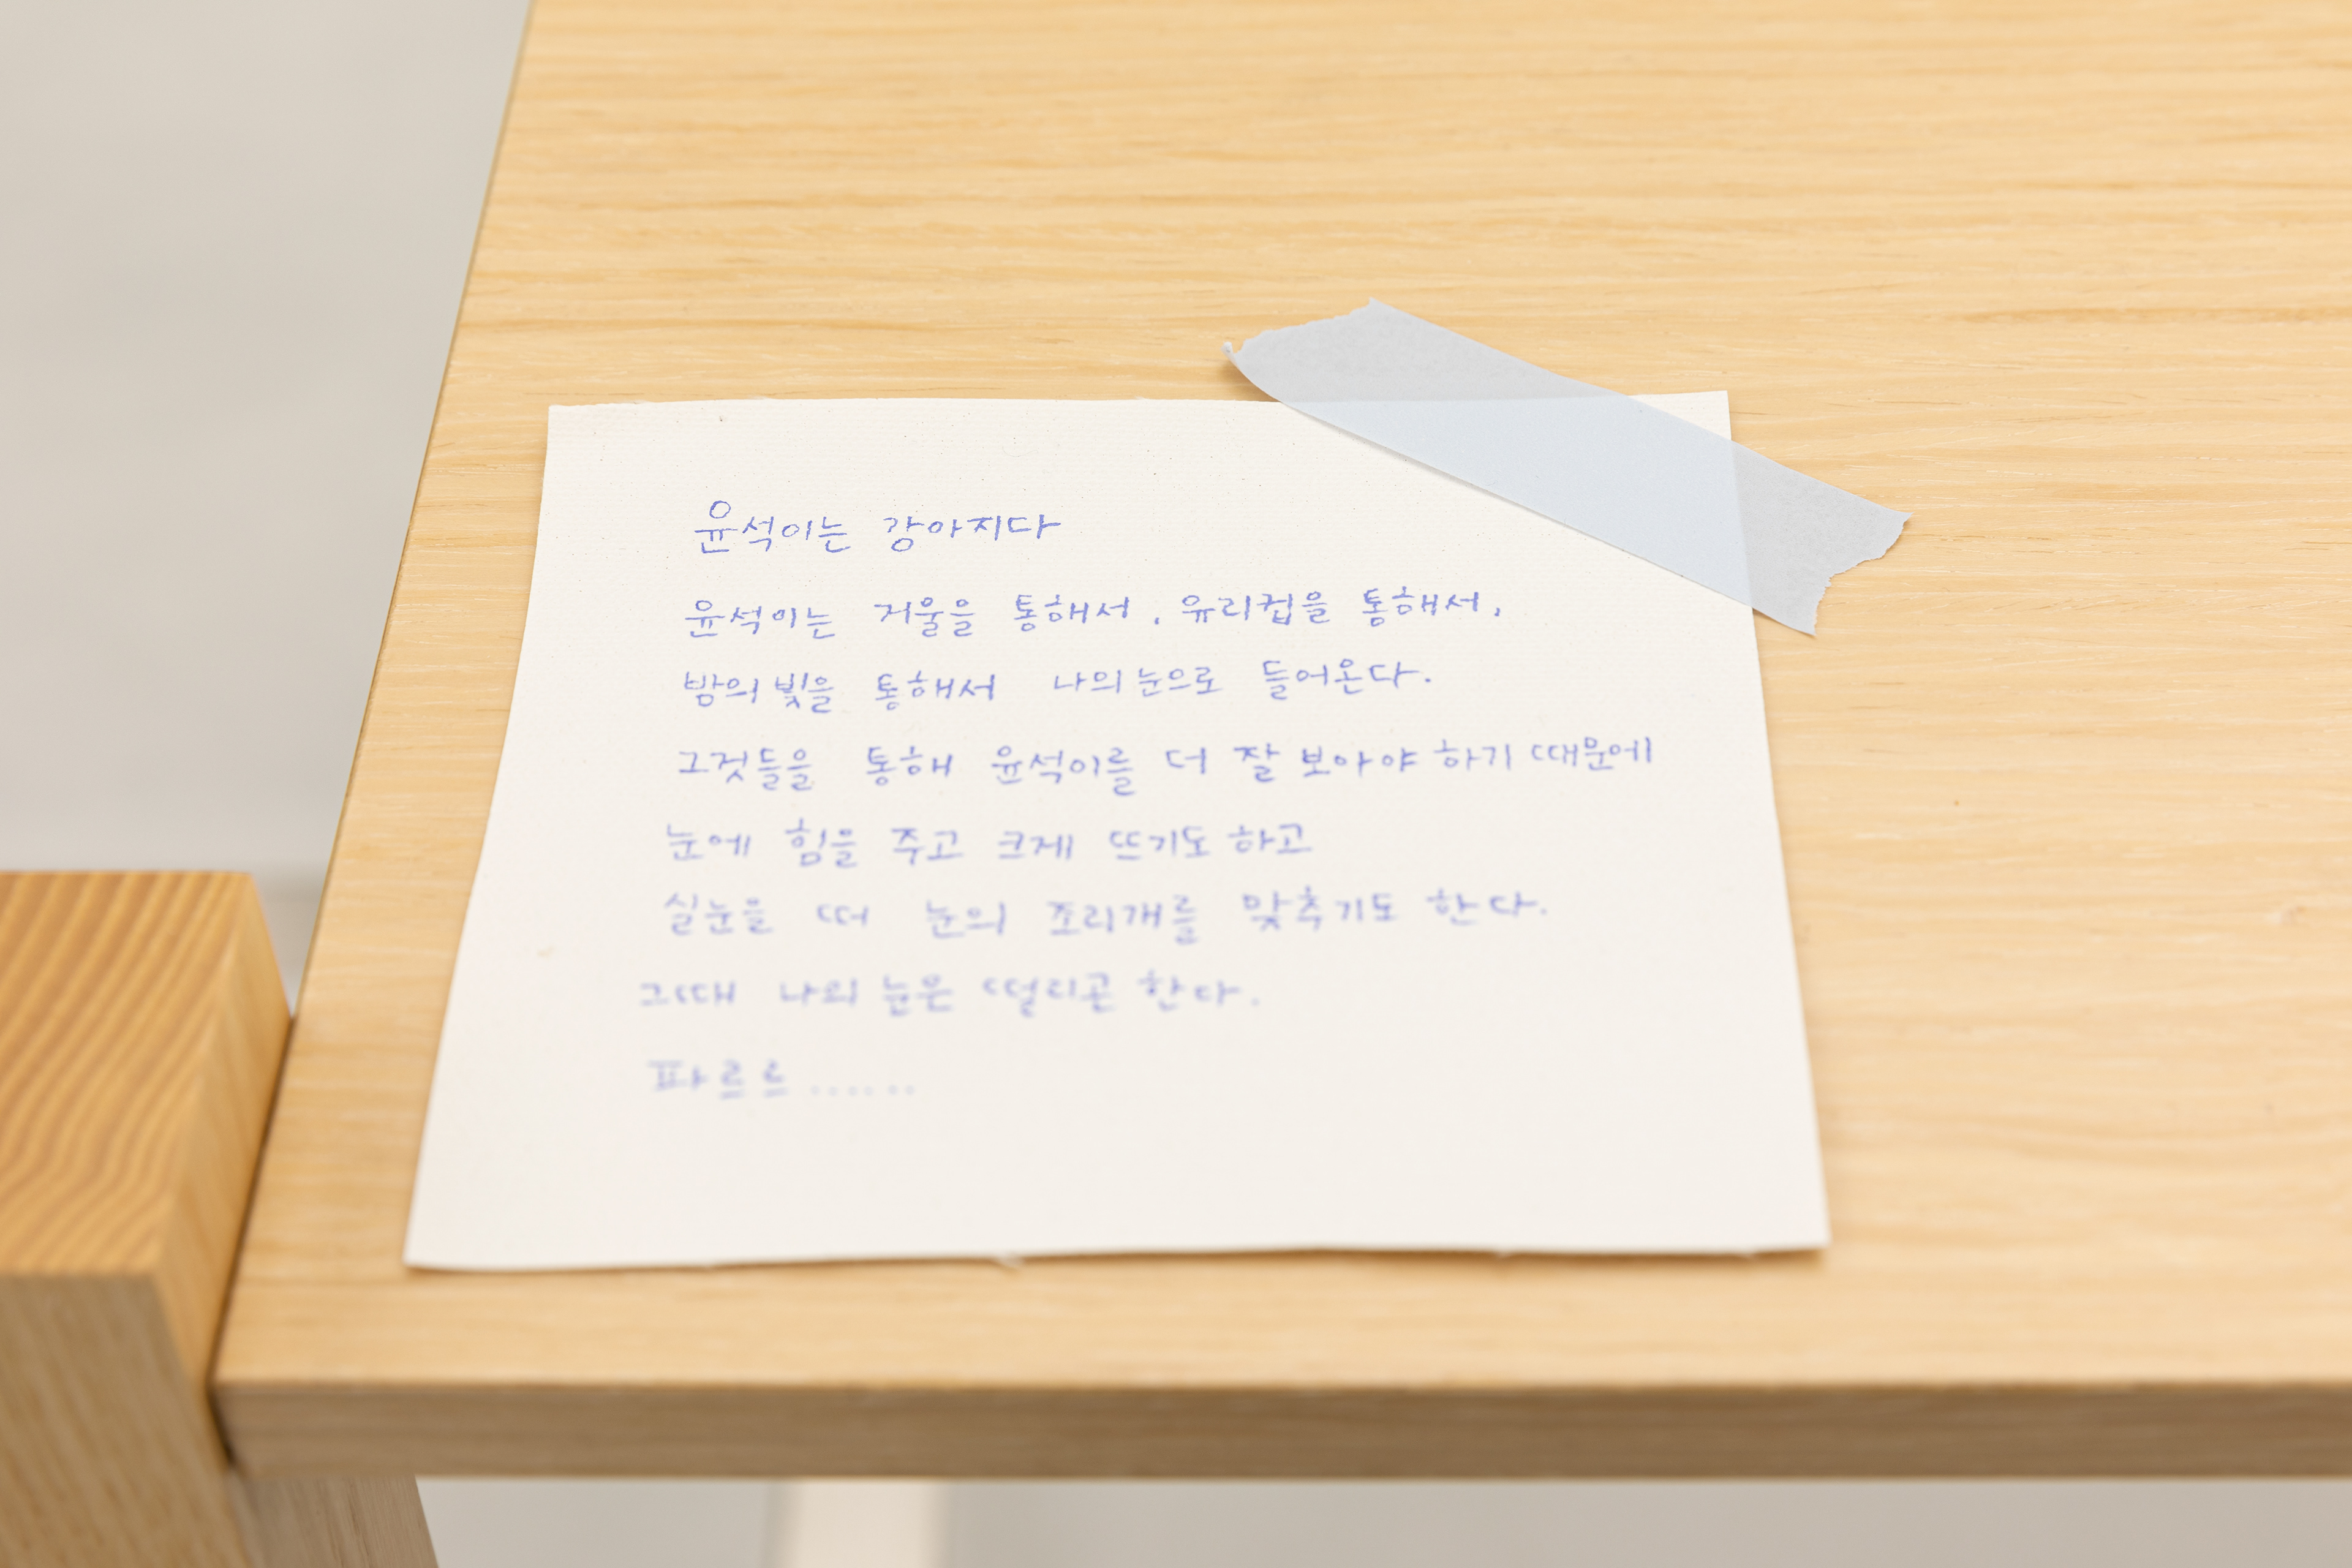 윤석이는 강아지다
윤석이는 거울을 통해서, 유리컵을 통해서,
밤의 빛을 통해서 나의 눈으로 들어온다.
그것들을 통해 윤석이를 더 잘 보아야 하기 때문에
눈에 힘을 주고 크게 뜨기도 하고
실눈을 떠 눈의 조리개를 맞추기도 한다.
그때 나의 눈은 떨리곤 한다.
파르르.......